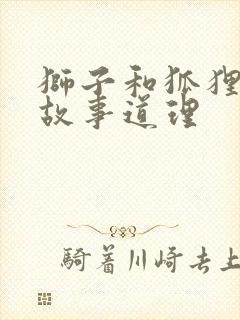 獅子和狐狸
故事道理
騎着川崎去上